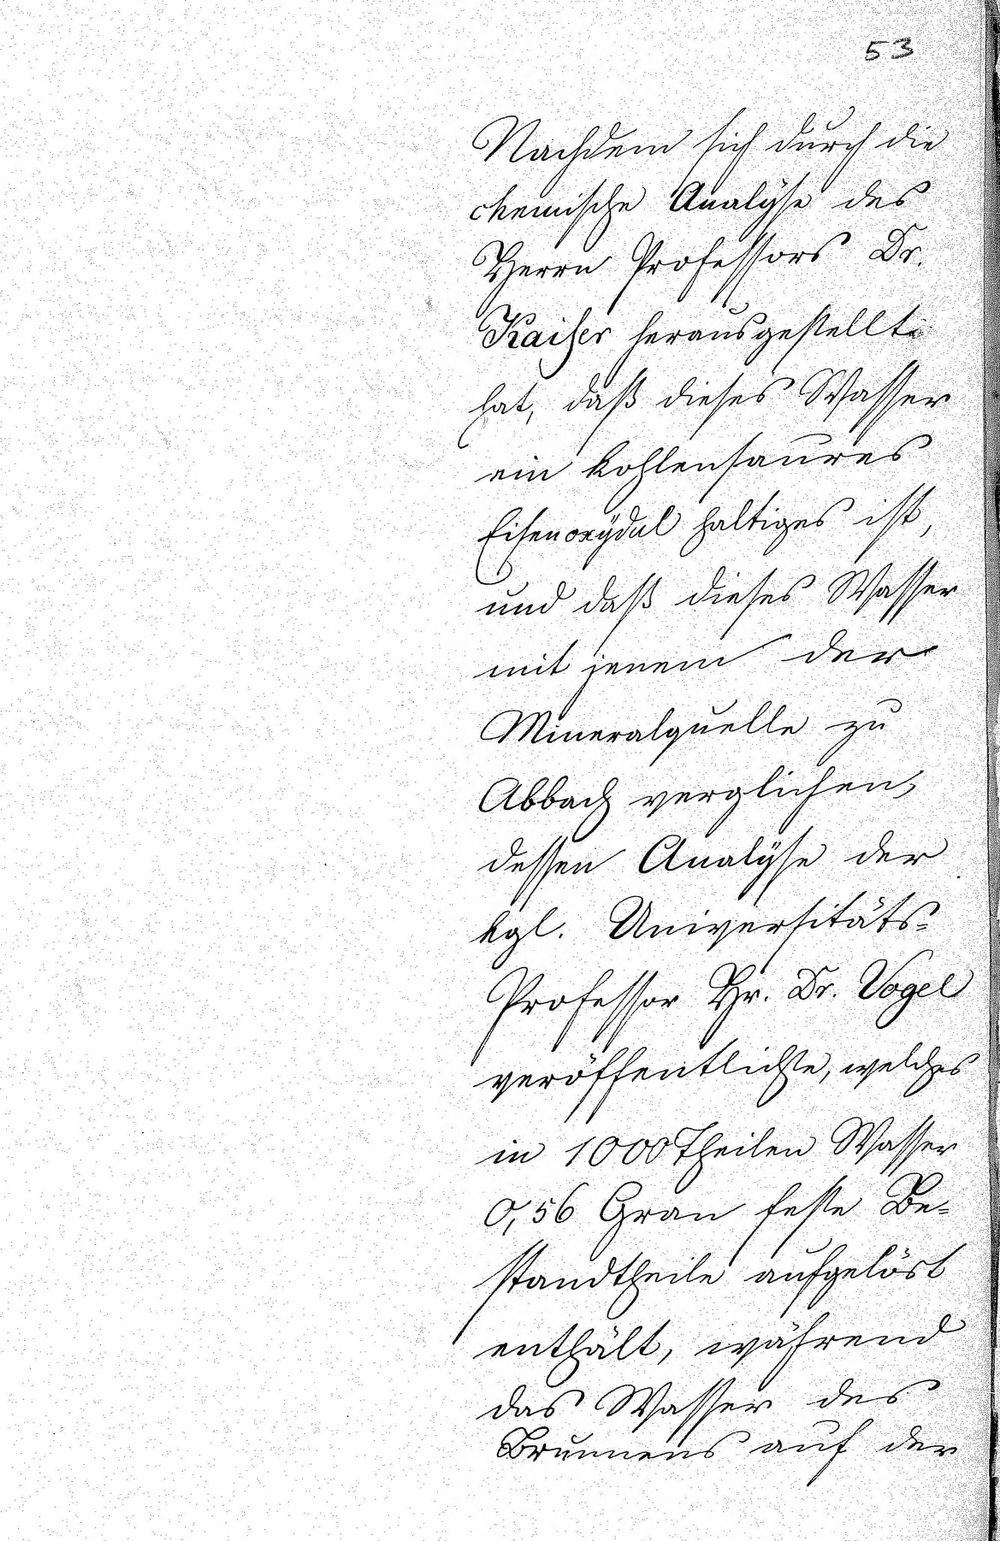 53
Nachdem sich durch die
chemische Analÿse des
Herrn Professors Dr.
Kaiser herausgestellt
hat, daß dieses Wasser
ein kohlensaures
Eisenoxÿdul haltiges ist,
und daß dieses Wasser
mit jenem der
Mineralquelle zu
Abbach verglichen,
dessen Analÿse der
kgl. Universitäts=
Professor Hr. Dr. Vogel
veröffentlichte, welches
in 1000 Theilen Wasser
0,56 Gran feste Be=
standtheile aufgelöst
enthält, während
das Wasser des
Brunnens auf der